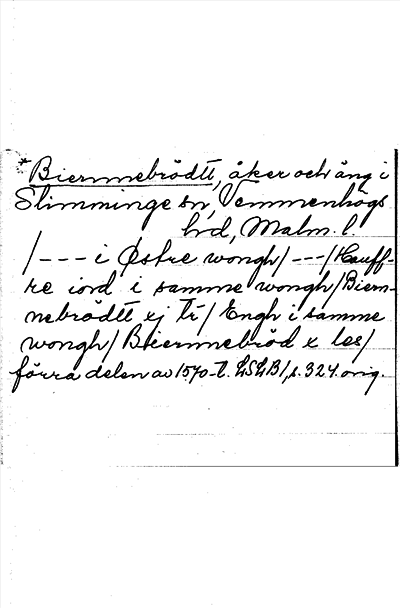 *Biernnebrödtt, åker och äng i
Slimminge sn, Vemmenhögs
hd, Malm. l.
/--- i Østre wongh/ ---/Hauff-
re iord i samme wongh/Biern-
nebrödtt ej ti/ Engh i samme
wongh/ Biernnebröd x les/
förra delen av 1570-t. LSLB1, s. 324 orig.